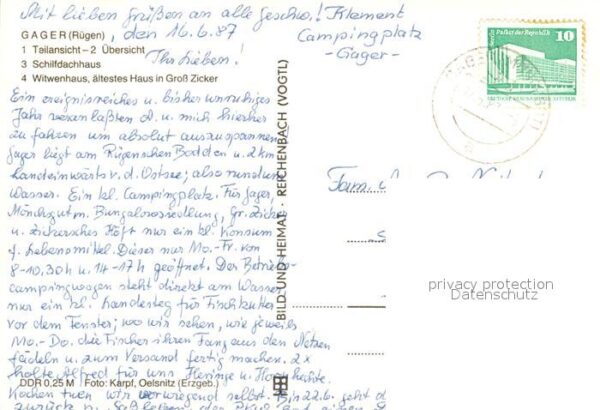 Mit lieben Grüßen an alle Geschw.! Klement
Campingplatz
- Gager -
GAGER (Rügen), den 16.6.87
1 Teilansicht – 2 Übersicht
3 Schilfdachhaus
Ihr Lieben!
4 Witwenhaus, ältestes Haus in Groß Zicker
Ein ereignisreiches u. bisher unruhiges
Jahr veranlaßten d. u. mich hierher
zu fahren um absolut auszuspannen.
Gager liegt am Rügenschen Bodden u. 2 km
landeinwärts v. d. Ostsee; also rundum
Wasser. Ein kl. Campingplatz. Für Gager,
Mönchgut m. Bungalowsiedlung, Gr. Zicker
u. Zickersches Höft nur ein kl. Konsum
f. Lebensmittel. Dieser nur Mo.-Fr. von
8-10,30 h u. 14-17 h geöffnet. Der Betriebs-
campingwagen steht direkt am Wasser
nur ein kl. Landesteg für Fischkutter
vor dem Fenster; wo wir sehen, wie jeweils
Mo.-Do. die Fischer ihren Fang aus den Netzen
fädeln u. zum Versand fertig machen. 2x
holte Alfred für uns Heringe u. Hornhechte.
Kochen tun wir vorwiegend selbst. 22.6. geht d
zurück n.
DDR 0,25 M Foto: Karpf, Oelsnitz (Erzgeb.)
BILD UND HEIMAT · REICHENBACH (VOGTL)
Palast der Republik
10
DEUTSCHE DEMOKRATISCHE REPUBLIK
Fam.
privacy protection
Datenschutz